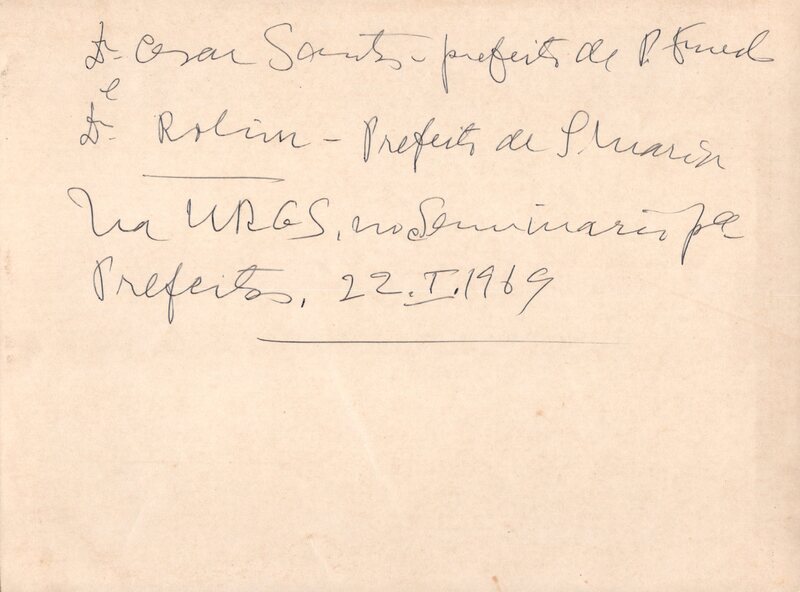 Dr. Cesar Santos - prefeito de P. Fundo
e
Dr. Rolim - Prefeito de S. Maria
Na URGS, no Seminario pa
Prefeitos, 22.I.1969